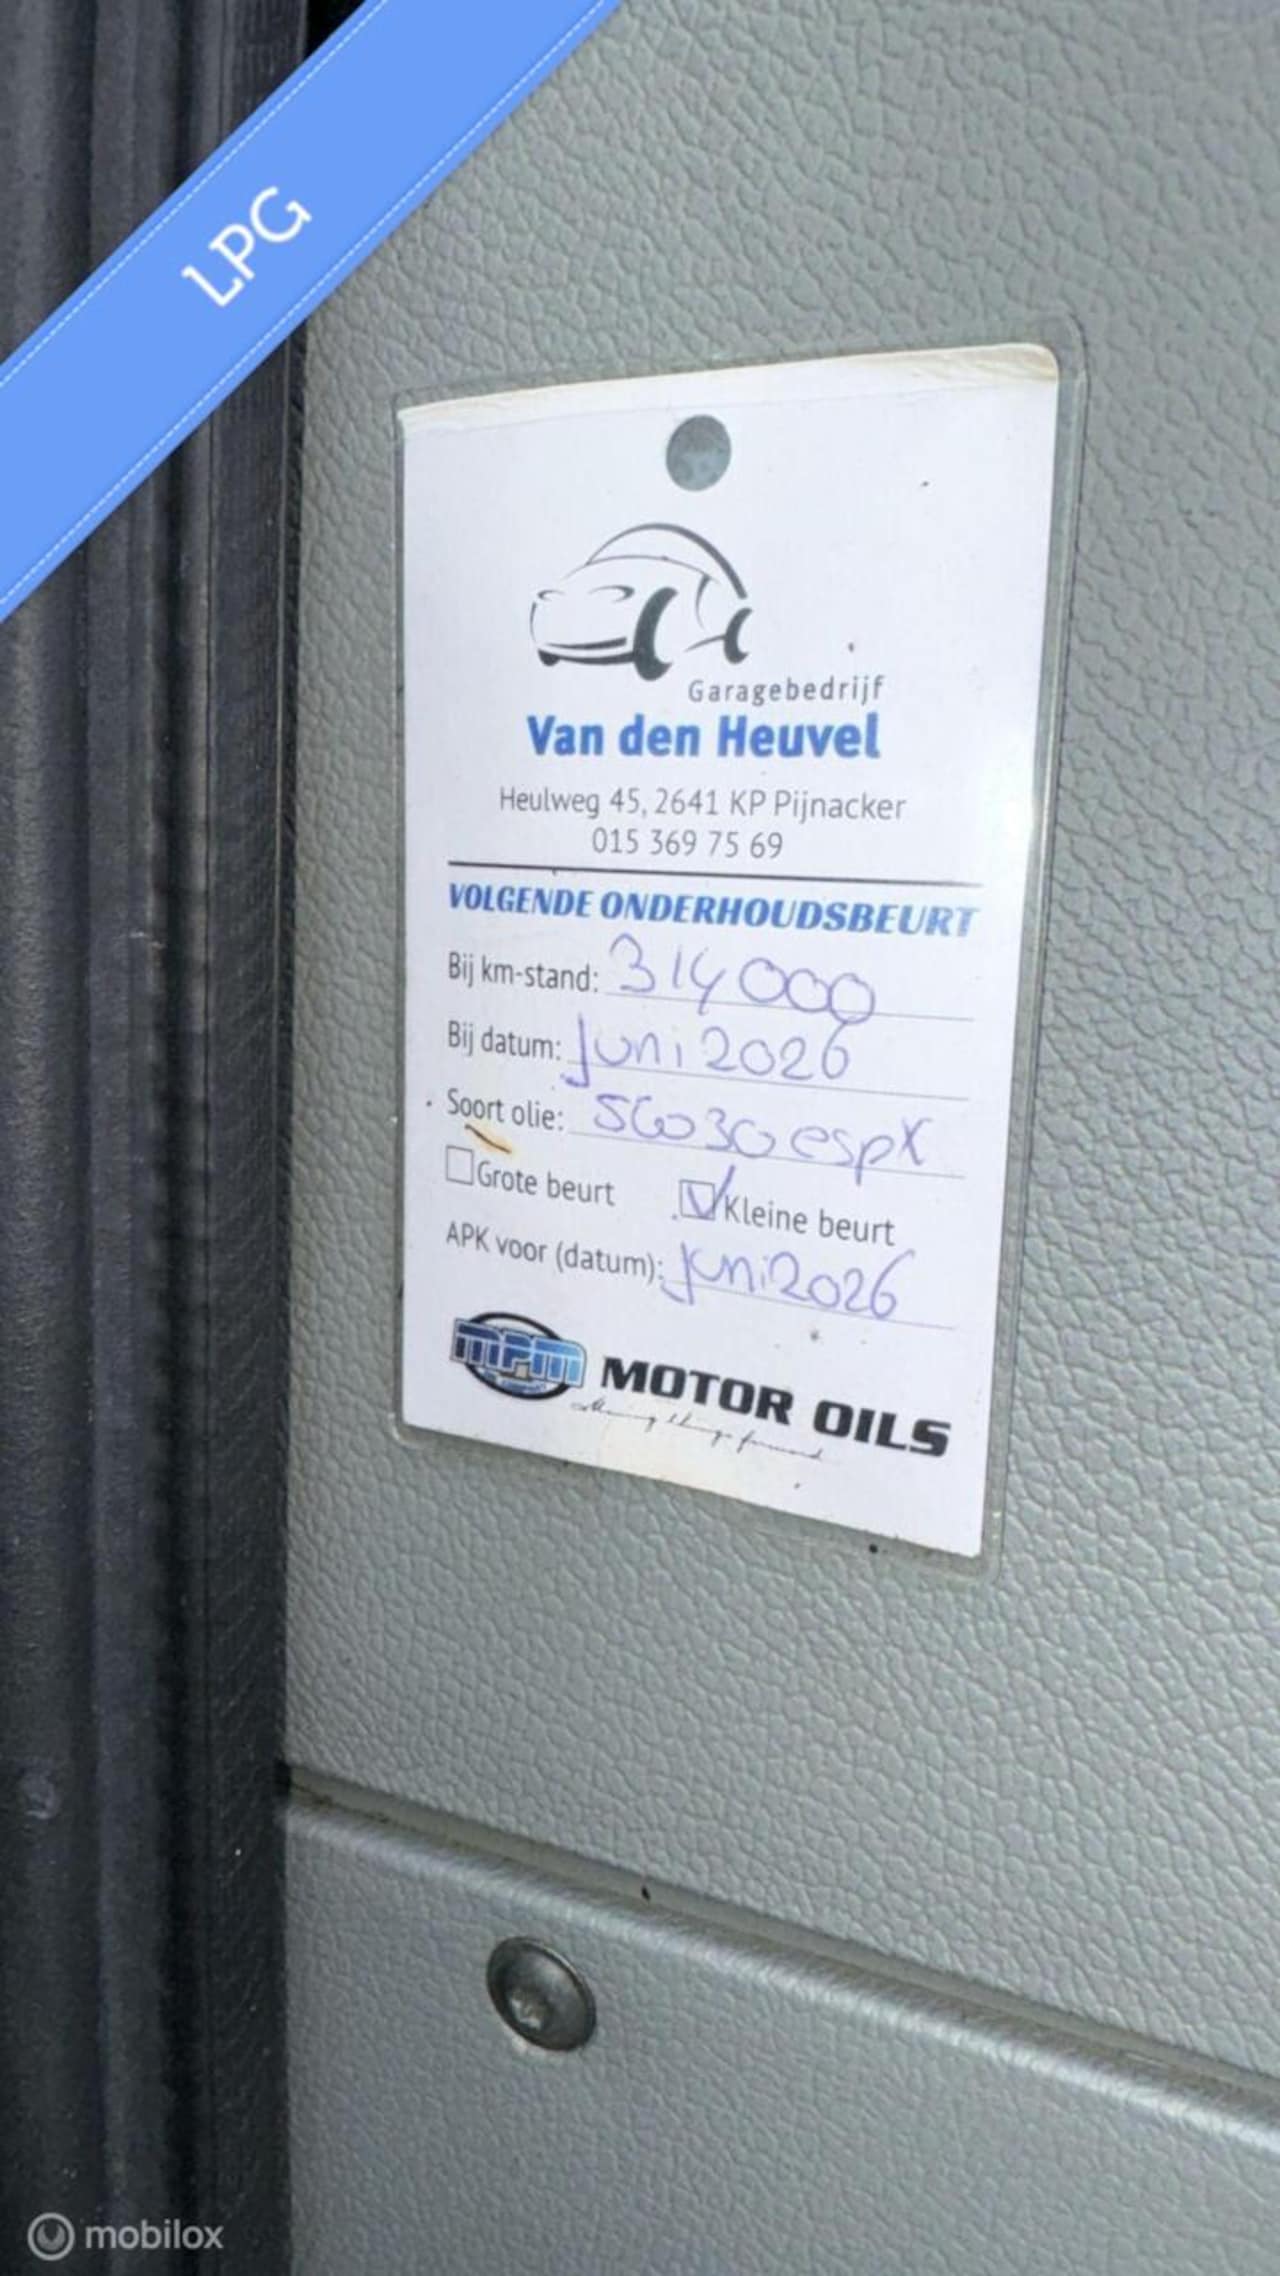 LPG
Garagebedrijf
Van den Heuvel
Heulweg 45, 2641 KP Pijnacker
015 369 75 69
VOLGENDE ONDERHOUDSBEURT
Bij km-stand: 314000
Bij datum: juni 2026
Soort olie: 5W030 espX
Grote beurt Kleine beurt
APK voor (datum): juni 2026
MPM MOTOR OILS
mobilox